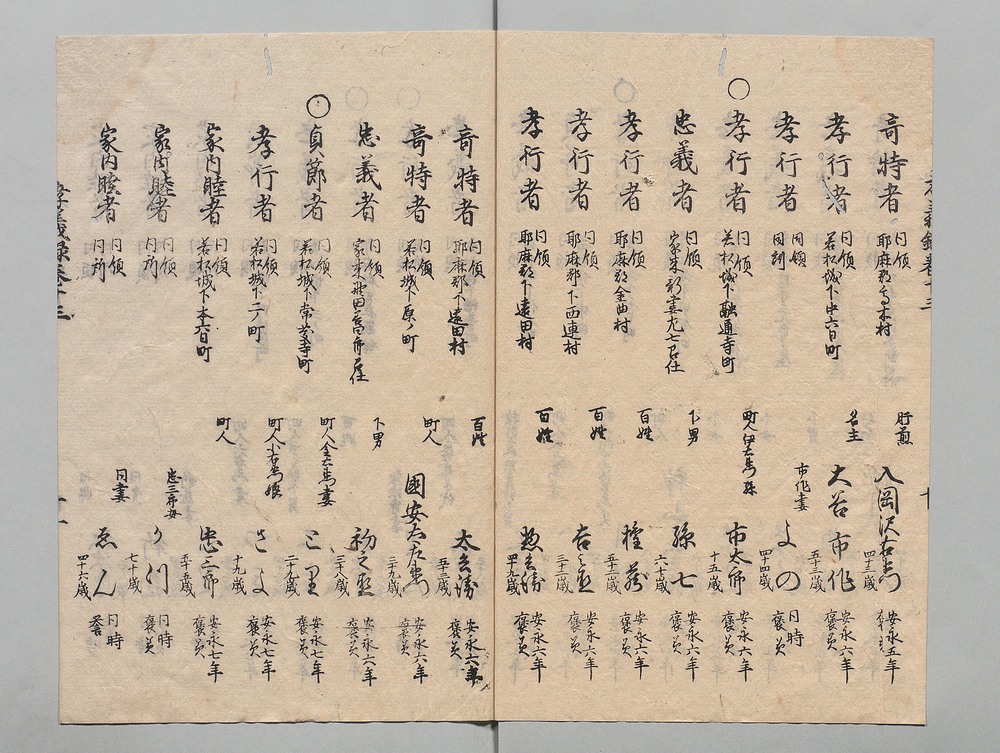 奇特者 同領 耶麻郡 木村 肝煎 入岡沢右衛門 安永五年 褒美
孝行者 同領 若松城下中六日町 名主 大谷市作 五十三歳 安永六年 褒美
孝行者 同領 同町 市作妻 よの 四十四歳 同時 褒美
孝行者 同領 若松城下融通寺町 町人伊右衛門孫 市太郎 十五歳 安永六年 褒美
忠義者 同領 家来 九七召仕 下男 孫七 六十歳 安永六年 褒美
孝行者 同領 耶麻郡金曲村 百姓 権蔵 三十二歳 安永六年 褒美
孝行者 同領 耶麻郡下西連村 百姓 吉之丞 三十二歳 安永六年 褒美
孝行者 同領 耶麻郡下遠田村 百姓 惣兵衛 四十九歳 安永六年 褒美
奇特者 同領 耶麻郡下遠田村 百姓 太兵衛 五十二歳 安永六年 褒美
奇特者 同領 若松城下原ノ町 町人 國安六左衛門 三十九歳 安永六年 褒美
忠義者 同領 家来 召仕 下男 初之丞 三十八歳 安永六年 褒美
貞節者 同領 若松城下常光寺町 町人金右衛門妻 とり 二十九歳 安永七年 褒美
孝行者 同領 若松城下二ノ町 町人小右衛門娘 さよ 十九歳 安永七年 褒美
家内睦者 同領 若松城下本六日町 町人 忠三郎 五十五歳 安永七年 褒美
家内睦者 同領 同所 忠三郎妻 りつ 七十歳 同時 褒美
家内睦者 同領 同所 同妻 ゑん 四十六歳 同時 褒美
孝義録巻十三